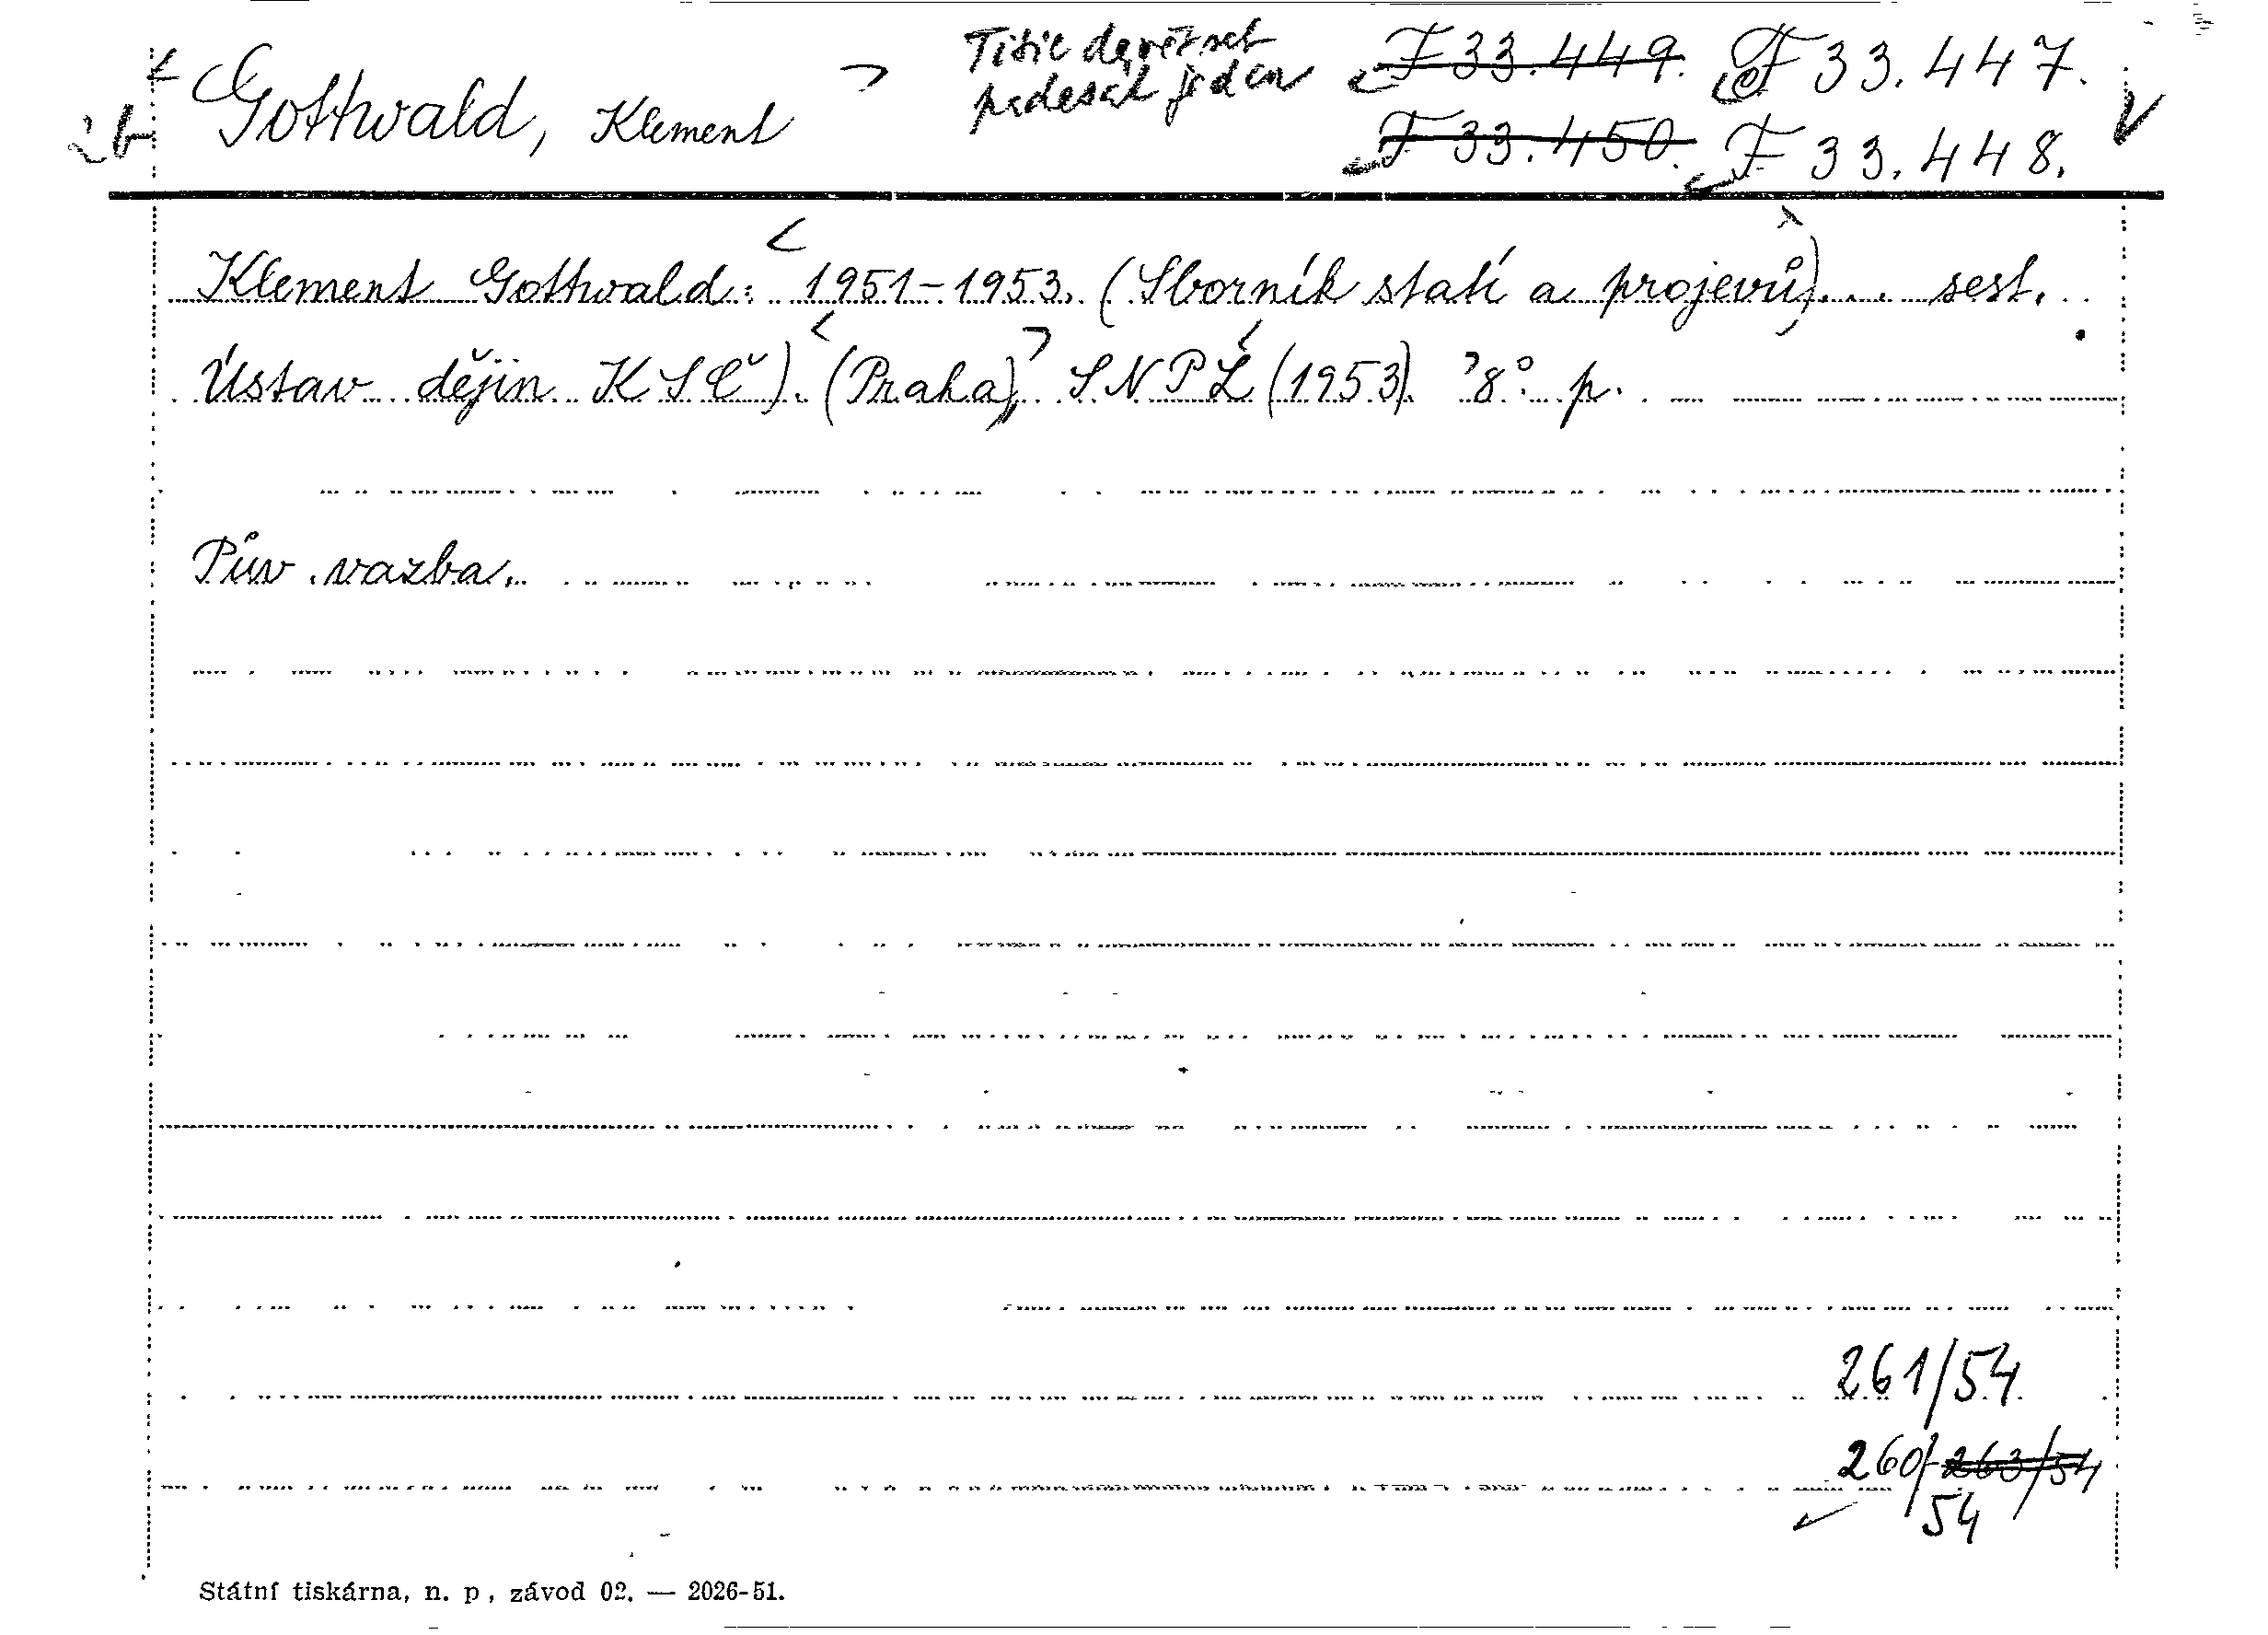 Gottwald, Klement
Tisíc devětset
padesát jeden
F 33.449. F 33.447.
F 33.450. F 33.448.
Klement Gottwald: 1951-1953. (Sborník statí a projevů)... sest.
Ústav dějin KSČ). (Praha), SNPL (1953). 8° p.
Pův. vazba.
261/54
260/ 263/54
54
Státní tiskárna, n. p., závod 02. — 2026-51.